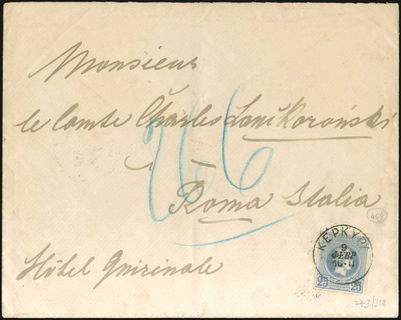 Monsieur
le Comte Charles Lanckoroński
Roma Italia
Hôtel Quirinale
ΚΕΡΚΥΡΑ
9
ΦΕΒΡ
25 25